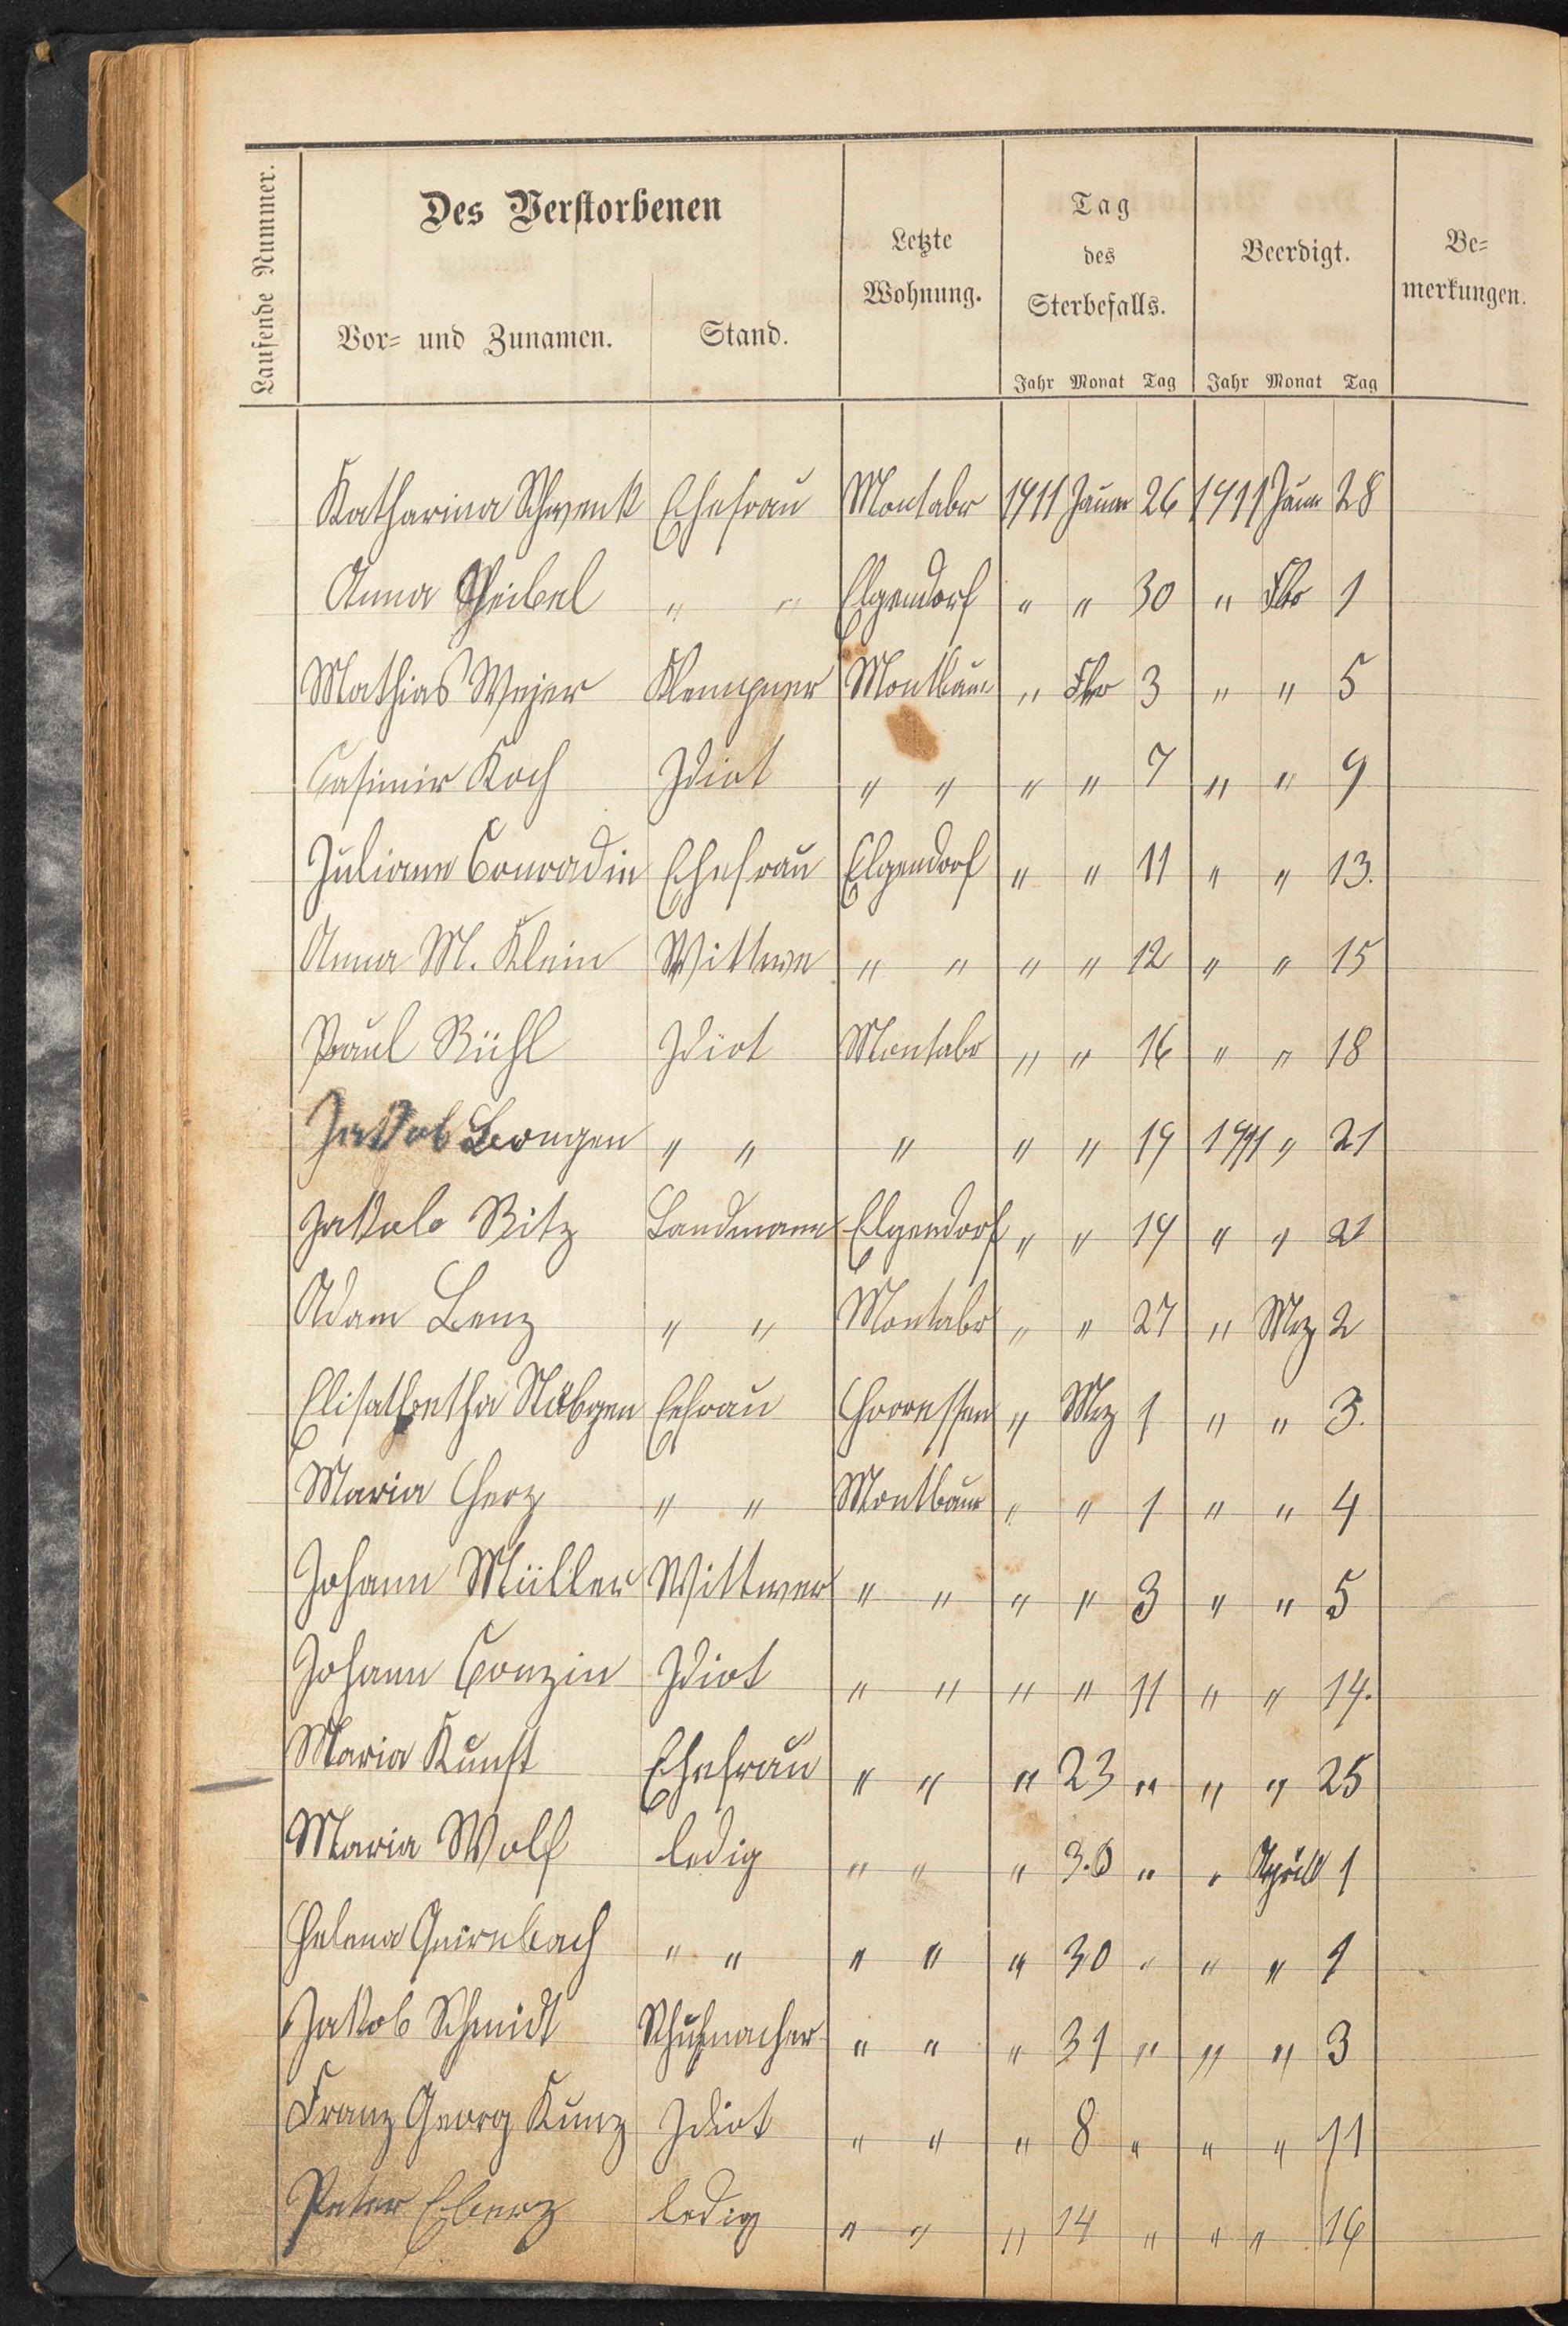 Laufende Nummer.
Des Verstorbenen
Vor- und Zunamen.
Stand.
Letzte
Wohnung.
Tag
des
Sterbefalls.
Jahr Monat Tag
Beerdigt.
Jahr Monat Tag
Be-
merkungen.
Katharina Schwenk Ehefrau Montabr 1911 Januar 26 1911 Janr 28
Anna Scheibel " " Elgendorf " " 30 " Fbr 1
Mathias Weyer Klempner Montbaur " Fbr 3 " " 5
Casimir Koch Idiot " " " " 7 " " 9
Juliane Conradin Ehefrau Elgendorf " " 11 " " 13.
Anna M. Klein Wittwe " " " " 12 " " 15
Paul Rühl Idiot Montabr " " 16 " " 18
Jakob Longen " " " " " 19 1911 " 21
Jakob Ritz Landmann Elgendorf " " 19 " " 21
Adam Lenz " " Montabr " " 27 " Mrz 2
Elisabetha Nöbgen Eefrau Horressen " Mrz 1 " " 3.
Maria Herz " " Montbaur " " 1 " " 4
Johann Müller Wittwer " " " " 3 " " 5
Johann Conzin Idiot " " " " 11 " " 14.
Maria Kunst Ehefrau " " " 23 " " " 25
Maria Wolf ledig " " " 30 " " April 1
Helena Geirnbach " " " " " 30 " " " 1
Jakob Schmidt Schuhmacher " " " 31 " " " 3
Franz Georg Kunz Idiot " " " 8 " " " 11
Peter Eberz ledig " " " 14 " " " 16